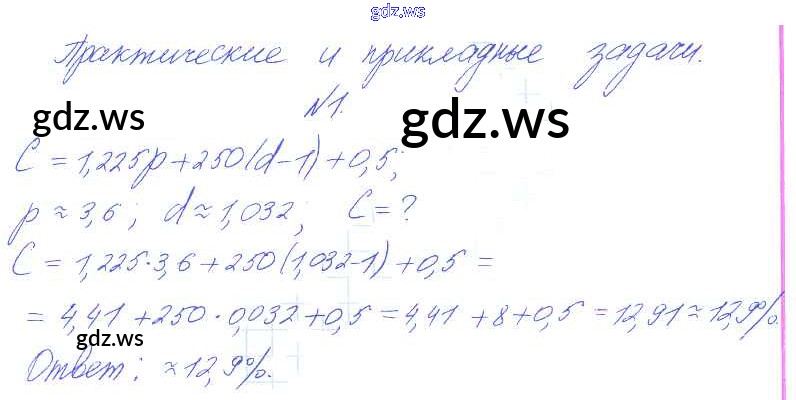 gdz.ws
Практические и прикладные задачи.
№1.
gdz.ws gdz.ws
C = 1,225p + 250(d-1) + 0,5;
p ≈ 3,6; d ≈ 1,032; C = ?
C = 1,225·3,6 + 250(1,032-1) + 0,5 =
= 4,41 + 250·0,032 + 0,5 = 4,41 + 8 + 0,5 = 12,91 ≈ 12,9%.
gdz.ws
Ответ: ≈ 12,9%.
gdz.ws